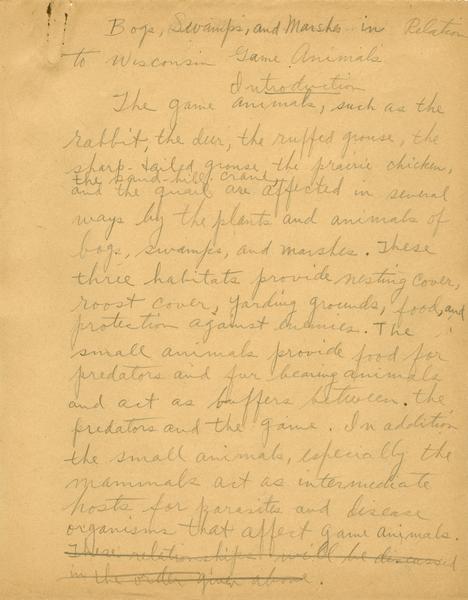 Bogs, Swamps, and Marshes in Relation
to Wisconsin Game Animals
Introduction
The game animals, such as the
rabbit, the deer, the ruffed grouse, the
sharp-tailed grouse, the prairie chicken,
the sand-hill crane,
and the quail are affected in several
ways by the plants and animals of
bogs, swamps, and marshes. These
three habitats provide nesting cover,
roost cover, yarding grounds, food, and
protection against enemies. The
small animals provide food for
predators and fur bearing animals
and act as buffers between the
predators and the game. In addition
the small animals, especially the
mammals act as intermediate
hosts for parasites and disease
organisms that affect game animals.
These relationships will be discussed
in the order given above.